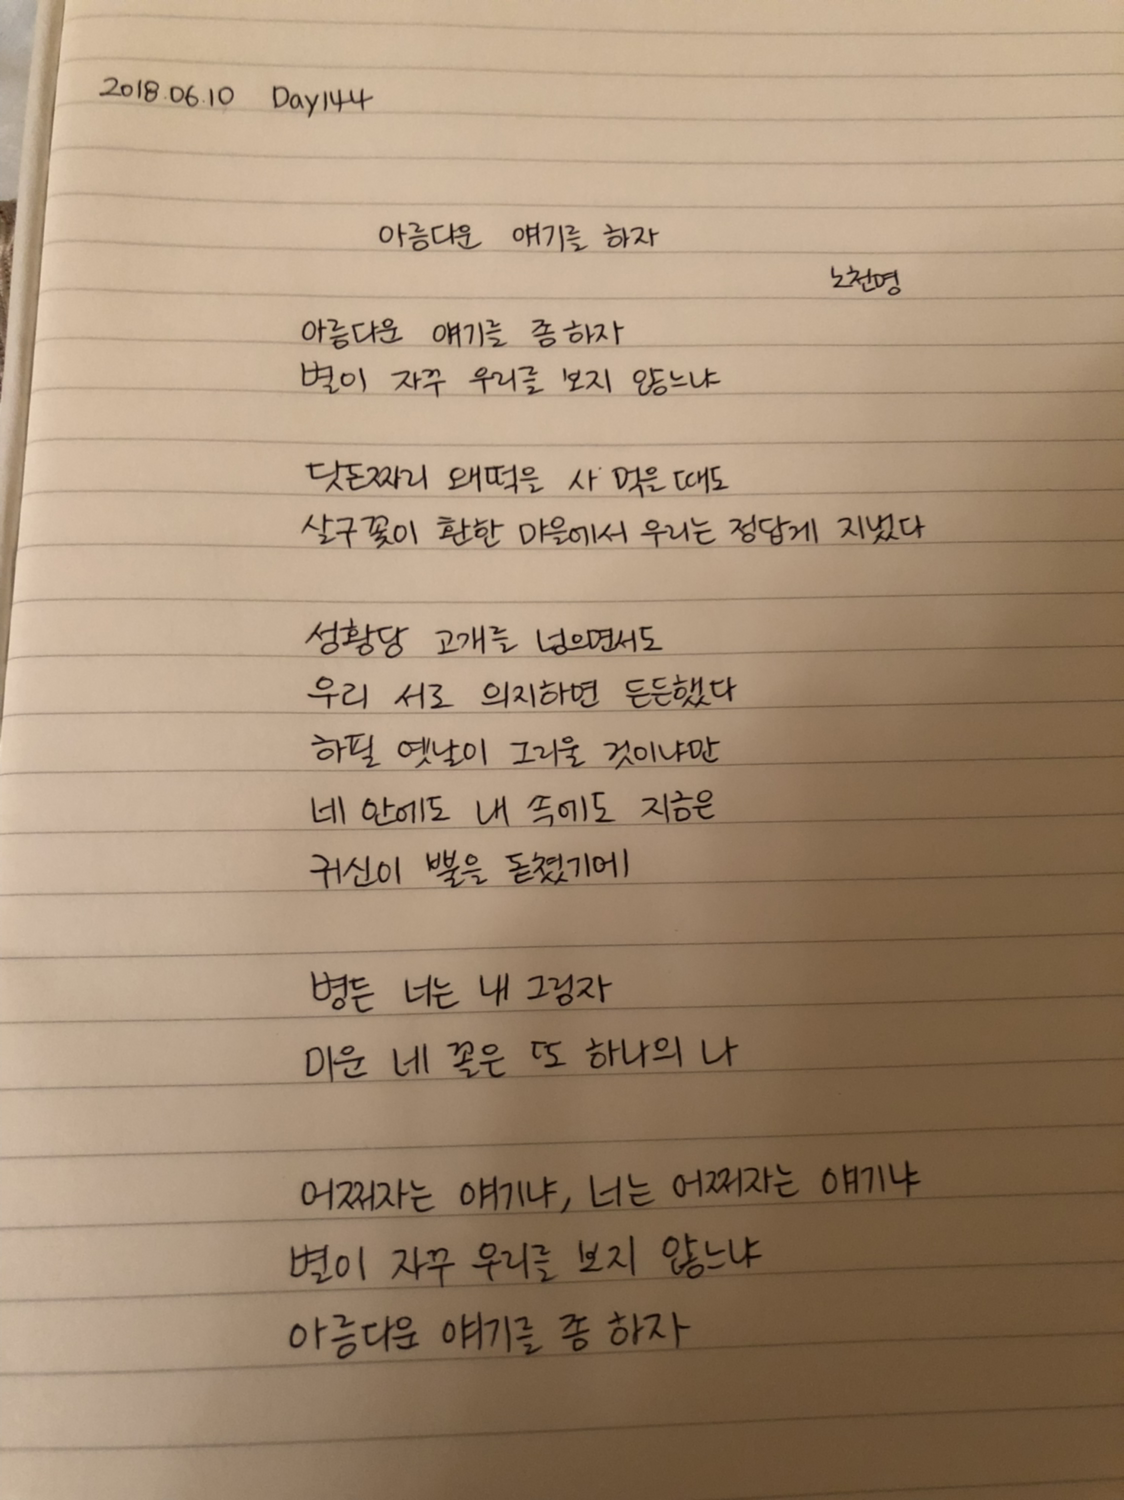 2018.06.10 Day144
아름다운 얘기를 하자
노천명
아름다운 얘기를 좀 하자
별이 자꾸 우리를 보지 않느냐
닷돈짜리 왜떡을 사 먹을 때도
살구꽃이 환한 마을에서 우리는 정답게 지냈다
성황당 고개를 넘으면서도
우리 서로 의지하면 든든했다
하필 옛날이 그리울 것이냐만
네 안에도 내 속에도 지금은
귀신이 뿔을 돋쳤기에
병든 너는 내 그림자
미운 네 꼴은 또 하나의 나
어쩌자는 얘기냐, 너는 어쩌자는 얘기냐
별이 자꾸 우리를 보지 않느냐
아름다운 얘기를 좀 하자